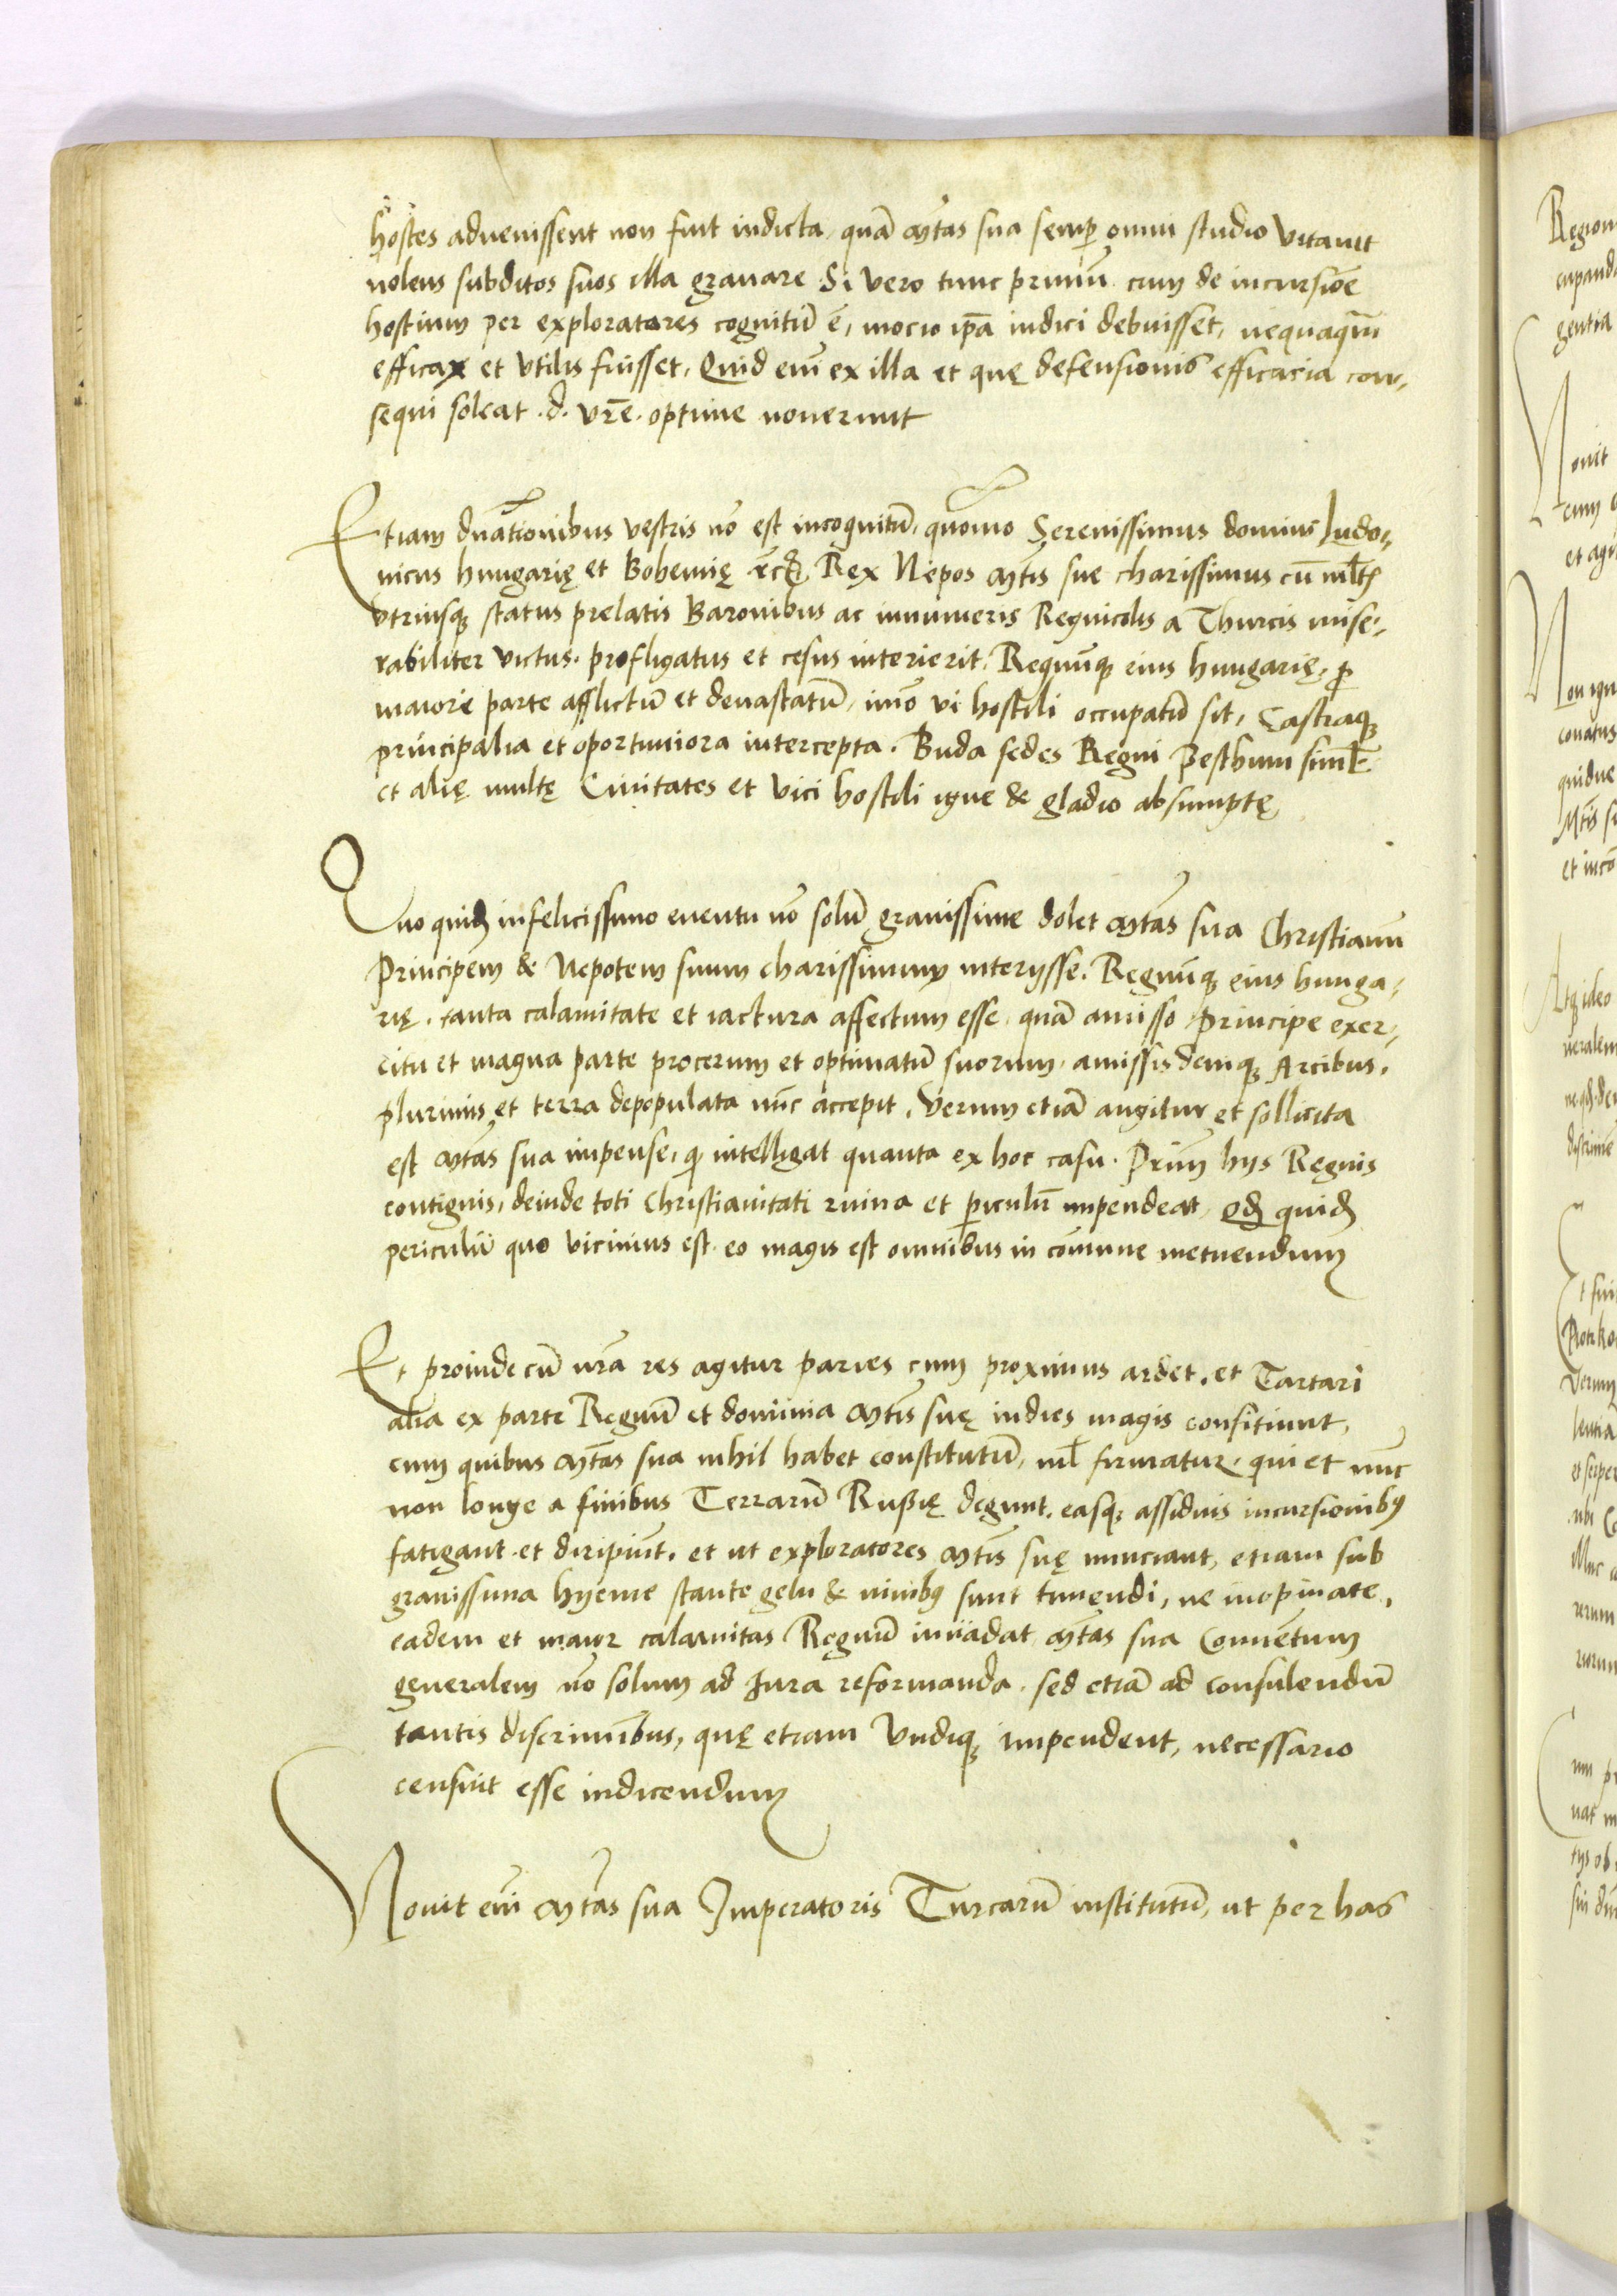 hostes aduenissent non fuit indicta, quā Mtas sua semp omni studio vitauit
nolens subditos suos illa grauare Si vero tunc primū cum de incursiōe
hostium per exploratores cognitū ē, mocio ipā indici debuisset, nequaqm̄
efficax et vtilis fuisset, Quid em̄ ex illa et quę defensionis efficacia con-
sequi soleat .d. vrē. optime nouerunt
Etiam dnātionibus vestris nō est incognitū, quōmo Serenissimus dominus Ludo-
uicus hungarię et Bohemię &c Rex Nepos Mtis sue charissimus cū mltis
vtriusq status prelatis Baronibus ac innumeris Regnicolis a Thurcis mise-
rabiliter victus. profligatus et cesus interierit, Regnūque eius hungarię, p
maiore parte afflictū et deuastatū, imō vi hostili occupatū sit, Castraq
principalia et oportuniora intercepta. Buda sedes Regni Pesthum siml
et alię multę Ciuitates et vici hostili igne & gladio absumptę
Quo quidē infelicissimo euentu nō solū grauissime dolet Mtas sua Christianū
Principem & Nepotem suum charissimum interysse. Regnūq eius hunga-
rię. tanta calamitate et iactura affectum esse, quā amisso Principe exer-
citu et magna parte procerum et optimatū suorum, amissis deniq Arcibus,
plurimis et terra depopulata nūc accepit. Verum etiā angitur et sollicita
est Mtas sua impense, q intelligat quanta ex hoc casu. Primū hys Regnis
contiguis, deinde toti Christianitati ruina et piculū impendeat, qd quidē
periculū quo vicinius est eo magis est omnibus in cōmune metuendum
Et proinde cū nrā res agitur paries cum proximus ardet, et Tartari
alia ex parte Regnū et dominia Mtis suę indies magis consitiunt,
cum quibus Mtas sua nihil habet constitutū, nil firmatur, qui et nūc
non longe a finibus Terrarū Rußię degunt, easq assiduis incursionibus
fatigant et diripiūt, et ut exploratores Mtis suę nunciant, etiam sub
grauissima hyeme stante gelu & niuibus sunt timendi, ne inopinate,
eadem et maior calamitas Regnū inuadat Mtas sua Conuētum
generalem nō solum ad Jura reformanda. sed etiā ad consulendū
tantis discriminibus, quę etiam Vndiq impendent, necessario
censuit esse indicendum
Nouit em̄ Mtas sua Imperatoris Turcarū institutū, ut per has